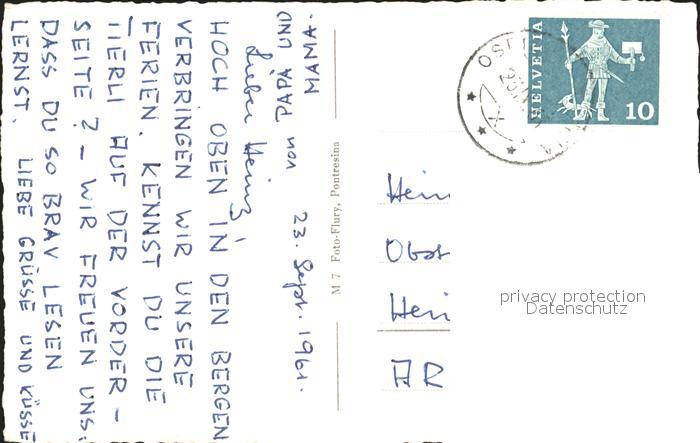 23. Sept. 1961.
Lieber Heinz!
HOCH OBEN IN DEN BERGEN
VERBRINGEN WIR UNSERE
FERIEN. KENNST DU DIE
TIERLI AUF DER VORDER-
SEITE? - WIR FREUEN UNS,
DASS DU SO BRAV LESEN
LERNST. LIEBE GRÜSSE UND KÜSSE
von PAPA UND
MAMA.
M 7 Foto-Flury, Pontresina
HELVETIA
10
Hein
Obst
Heri
AR
privacy protection
Datenschutz